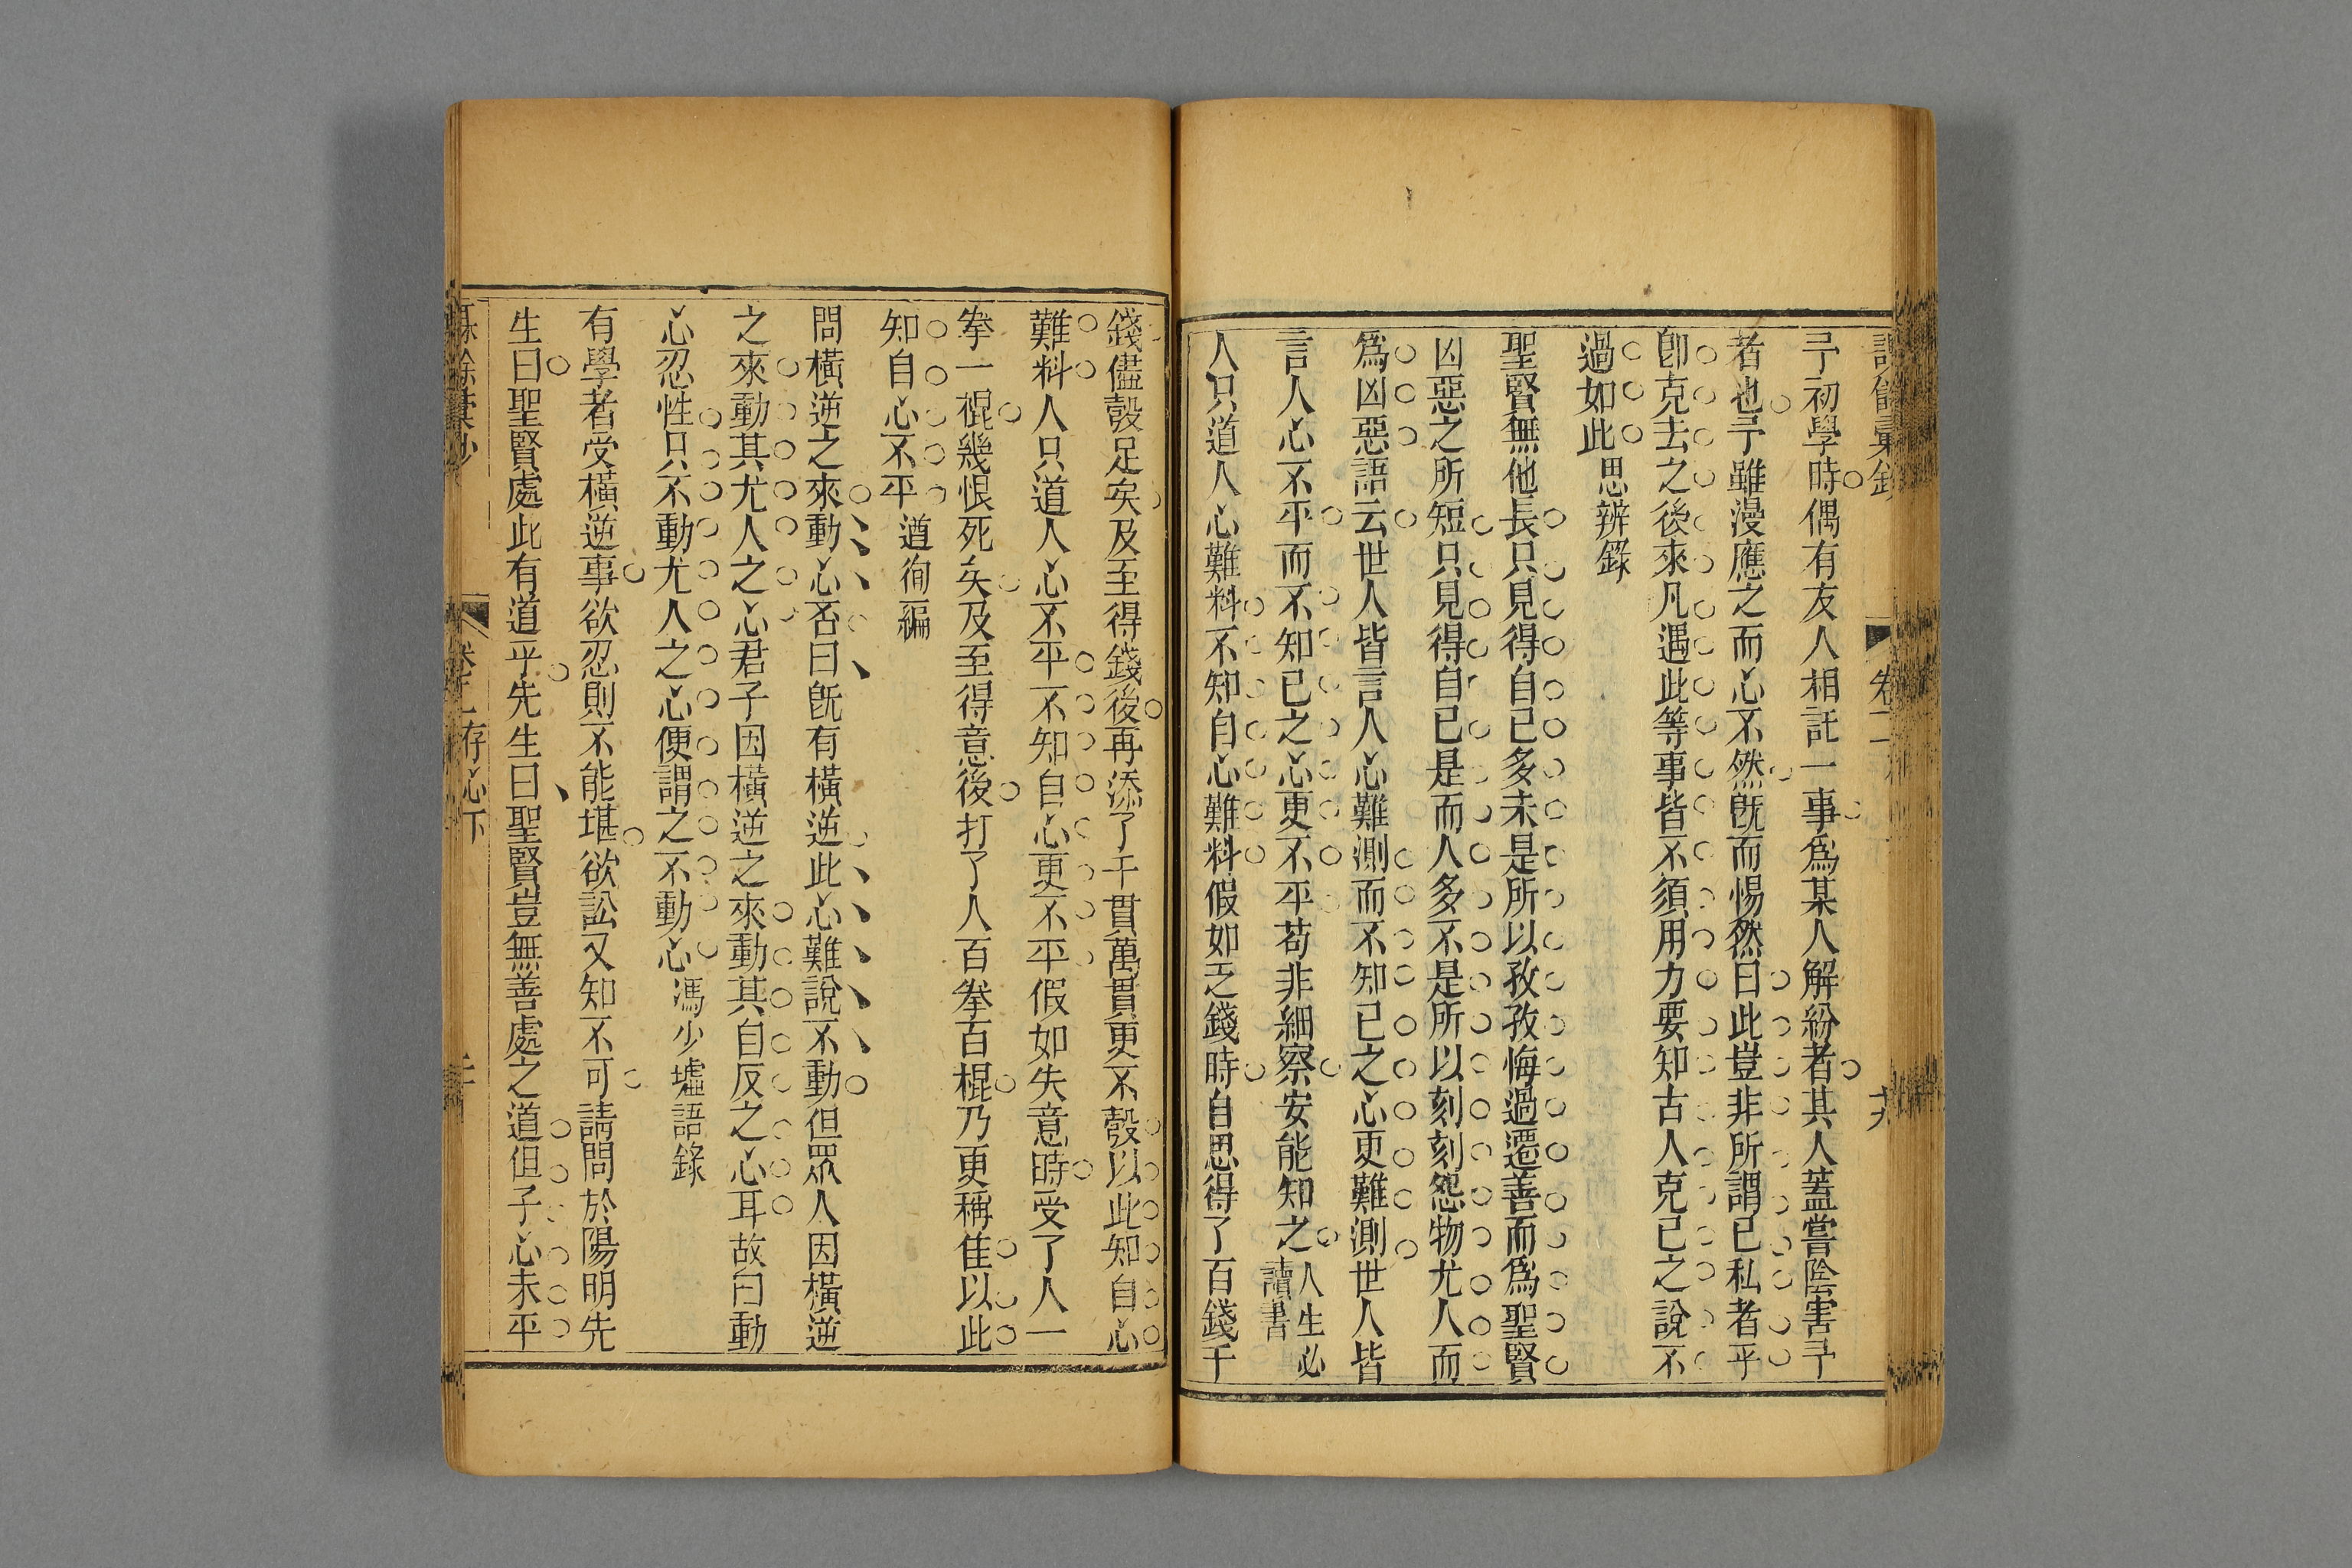 予初學時偶有友人相託一事爲某人解紛者其人蓋嘗陰害予
者也予雖漫應之而心不然旣而惕然曰此豈非所謂己私者乎
卽克去之後來凡遇此等事皆不須用力要知古人克己之說不
過如此 思辨錄
聖賢無他長只見得自己多未是所以孜孜悔過遷善而爲聖賢
凶惡之所短只見得自己是而人多不是所以刻刻怨物尤人而
爲凶惡語云世人皆言人心難測而不知己之心更難測世人皆
言人心不平而不知己之心更不平苟非細察安能知之 人生必讀書
人只道人心難料不知自心難料假如乏錢時自思得了百錢千
錢儘彀足矣及至得錢後再添了千貫萬貫更不彀以此知自心
難料人只道人心不平不知自心更不平假如失意時受了人一
拳一棍幾恨死矣及至得意後打了人百拳百棍乃更稱隹以此
知自心不平 遒徇編
問橫逆之來動心否曰旣有橫逆此心難說不動但眾人因橫逆
之來動其尤人之心君子因橫逆之來動其自反之心耳故曰動
心忍性只不動尤人之心便謂之不動心 馮少墟語錄
有學者受橫逆事欲忍則不能堪欲訟又知不可請問於陽明先
生曰聖賢處此有道乎先生曰聖賢豈無善處之道但子心未平
卷二 存心下